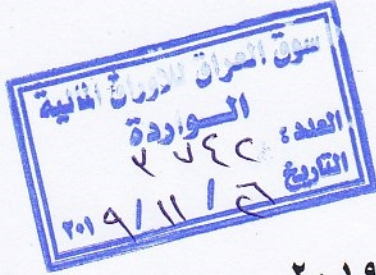 سوق العراق للاوراق المالية
الـواردة
العدد :
التاريخ ٢٦ / ١١ / ٢٠١٩
٢٠١٩